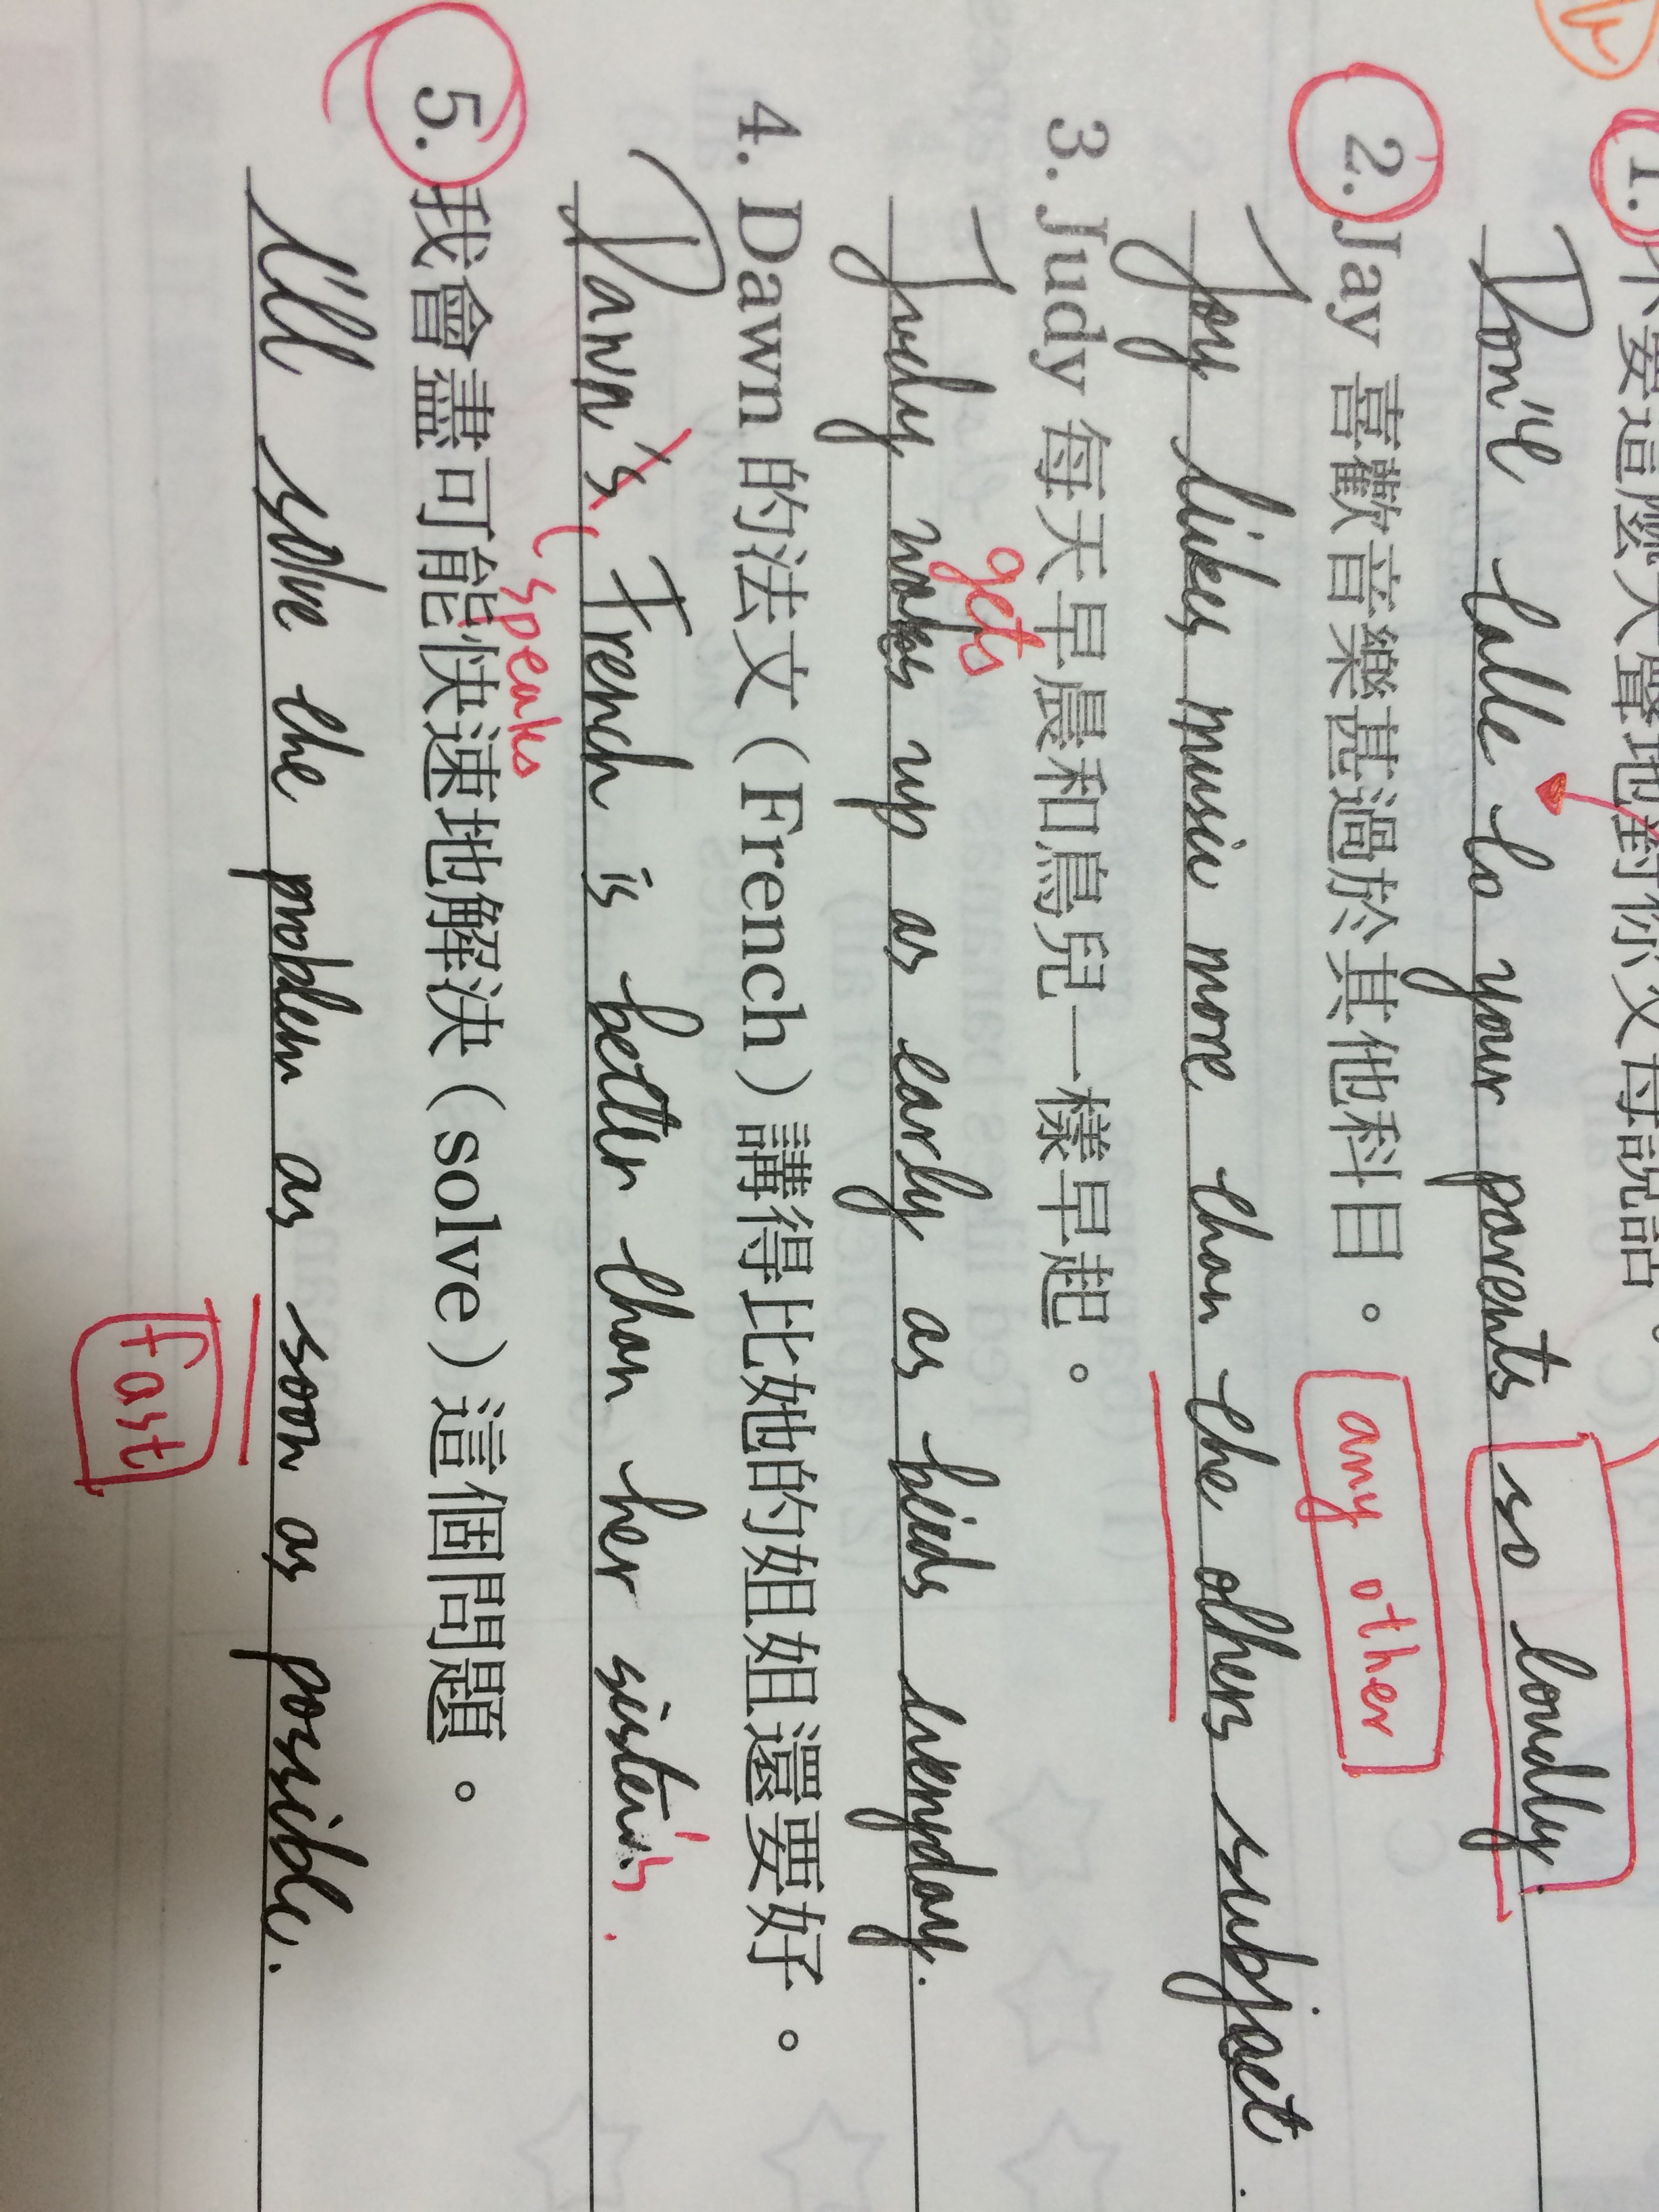 1. 不要這麼大聲地對你父母說話。
Don't talk to your parents so loudly.
any other
2. Jay 喜歡音樂甚過於其他科目。
Jay likes music more than the others subject.
3. Judy 每天早晨和鳥兒一樣早起。
gets
Judy wakes up as early as birds everyday.
4. Dawn 的法文（French）講得比她的姐姐還要好。
Dawn's French is better than her sister's.
speaks
5. 我會盡可能快速地解決（solve）這個問題。
I'll solve the problem as soon as possible.
fast